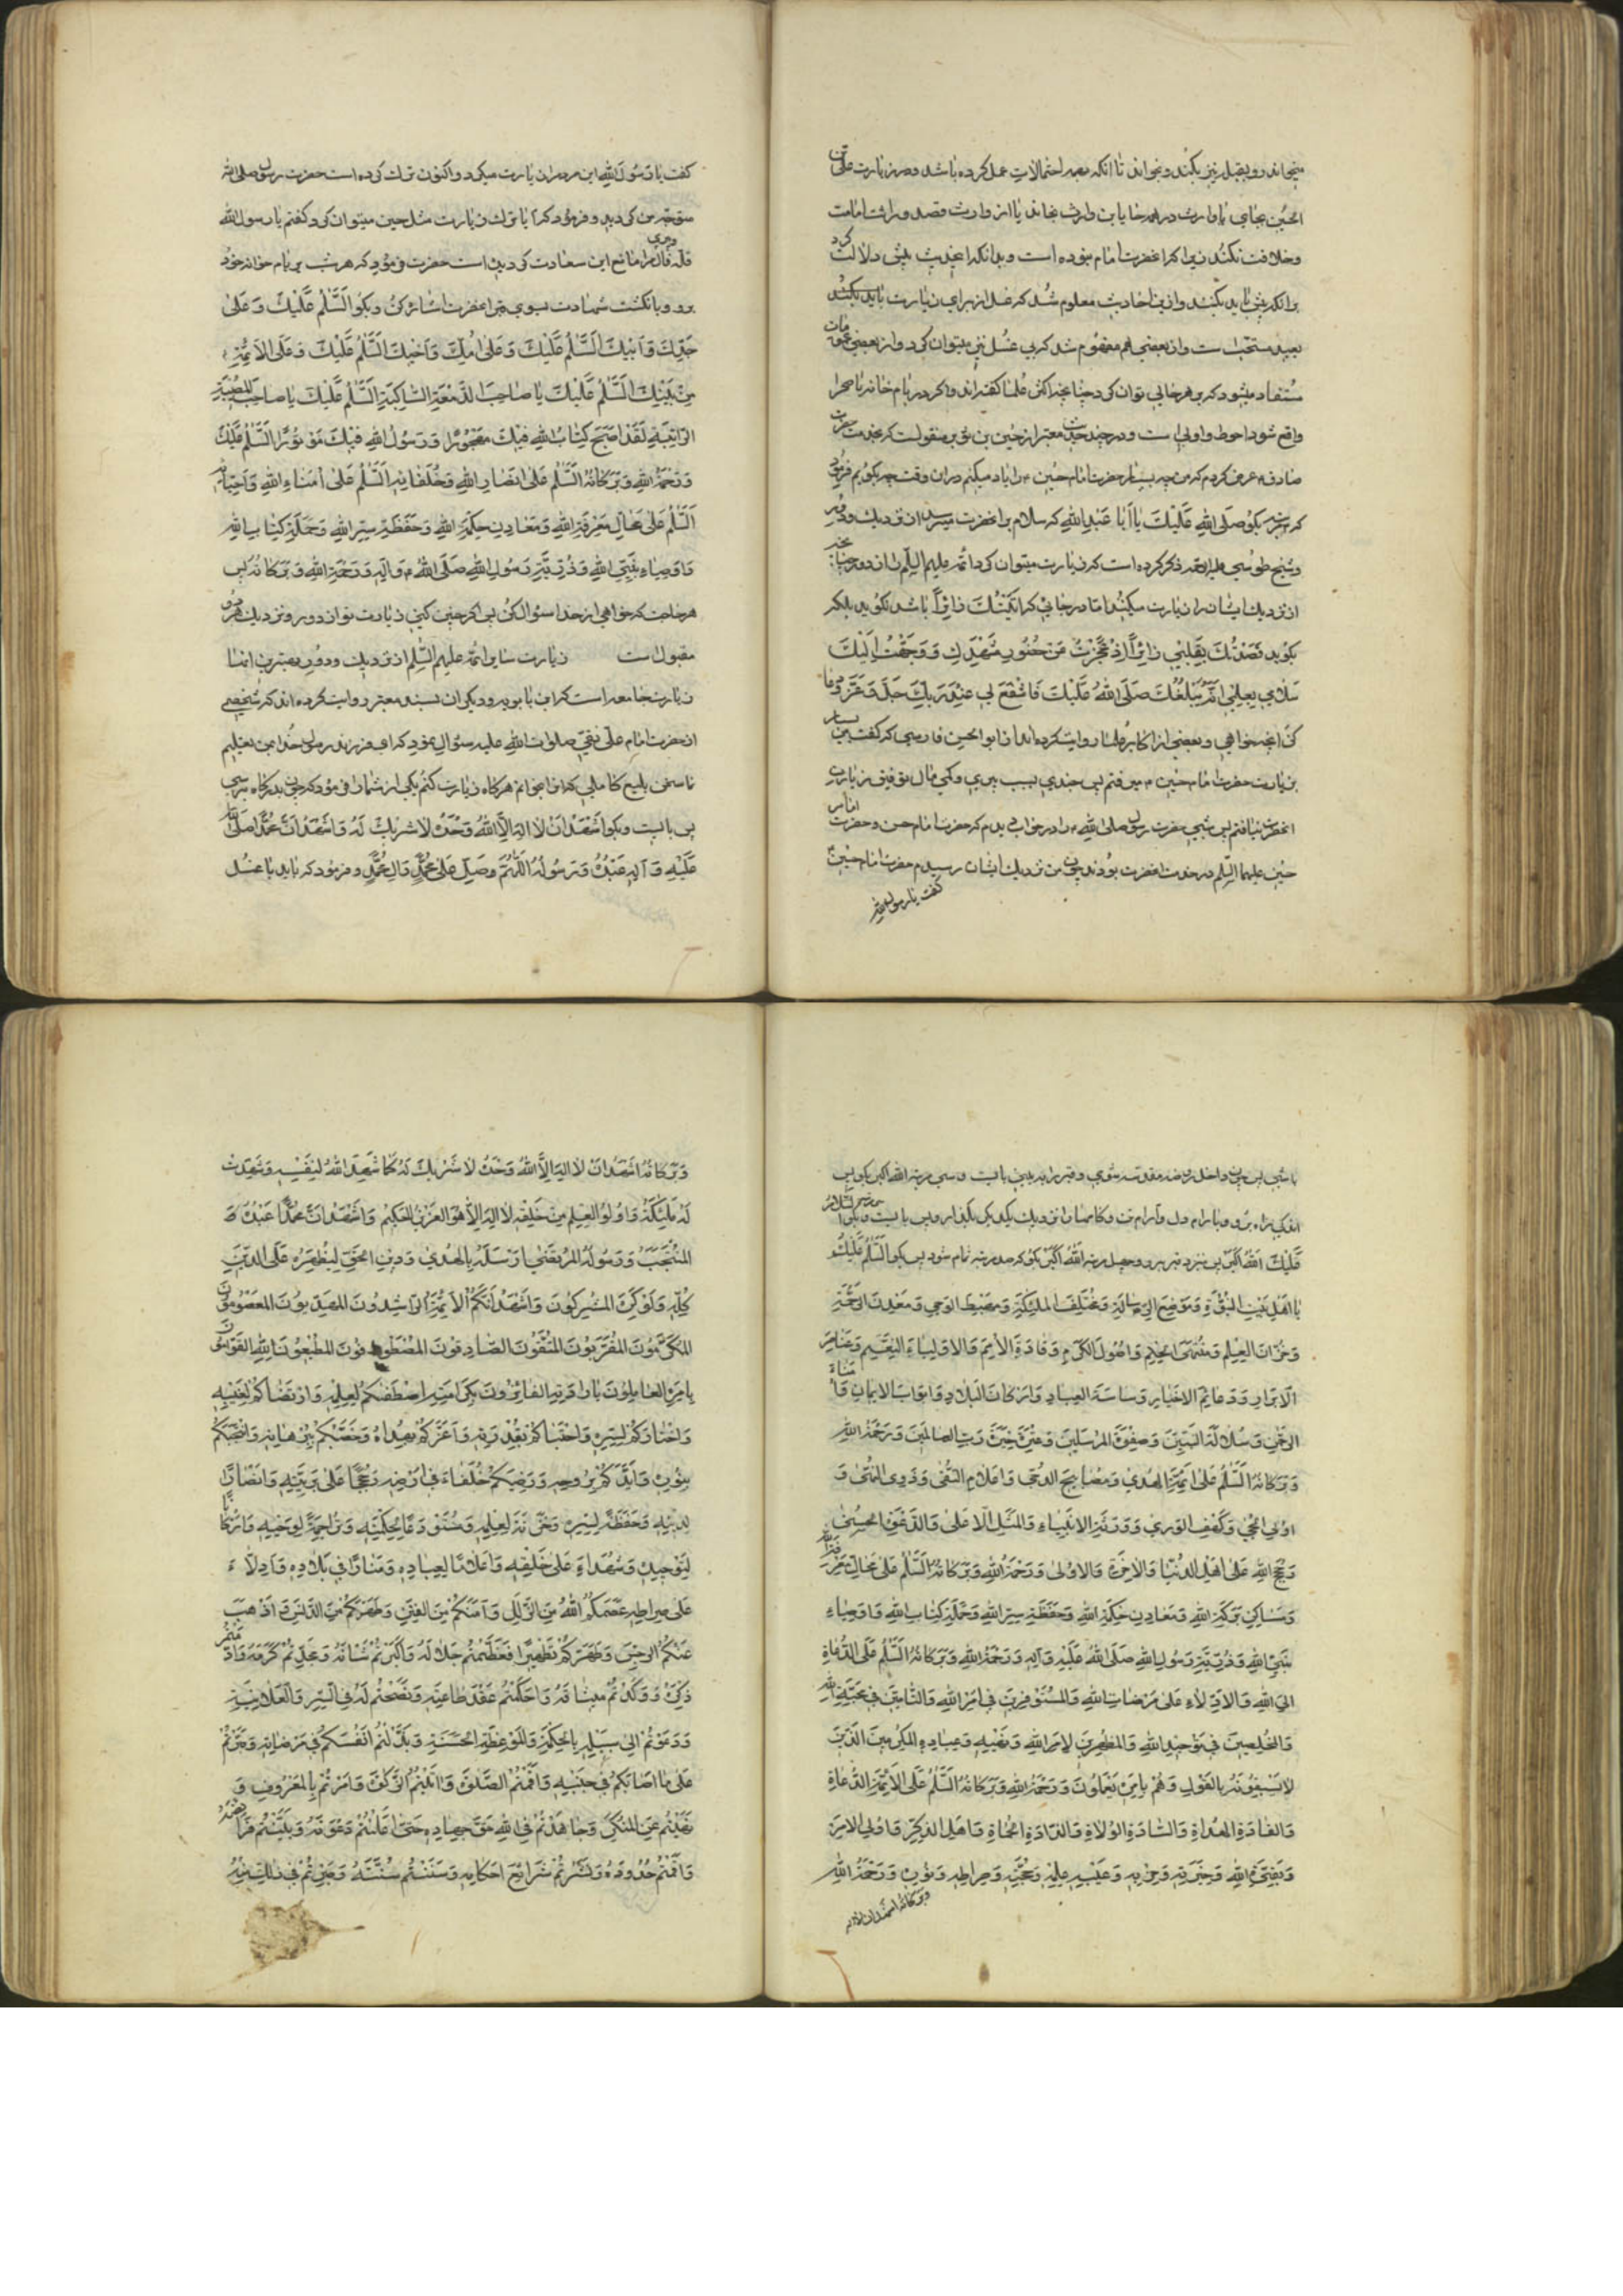 میخواند رو بقبله نیز بکند و بخواند تا آنکه بهمه احتمالات عمل کرده باشد و در زیارت علی بن
الحسین بجای یا وارث در همه جا یا بن وارث بخواند یا از وارث قصد وراثت امامت
و خلافت نکند زیرا که آنحضرت امام نبوده است و بدانکه احادیث پیش دلالت کرد
بر آنکه پیش باید بکنند و از این احادیث معلوم شد که غسل از برای زیارت باید بکنند
بعید مستحب است و از بعضی هم مفهوم شد که بی غسل نیز میتوان کرد و از بعضی عمومات
مستفاد میشود که بر هر حالی توان کرد چنانچه اکثر علما گفته‌اند و اگر در بام خانه یا صحرا
واقع شود احوط و اولی است و در چند حدیث معتبر از حسین بن ثویر منقولست که بخدمت حضرت
صادق ع عرض کردم که من چه بسیار حضرت امام حسین ع را یاد میکنم در آن وقت چه بگویم فرمود
که سه مرتبه بگو صلی الله علیک یا ابا عبد الله که سلام بر آنحضرت میرسد از نزدیک و دور
و شیخ طوسی علیه الرحمه ذکر کرده است که زیارت میتوان کرد ائمه علیهم السلم را از دور چنانچه
از نزدیک ایشان را زیارت میکنند اما در جائی که اتیتک زائرا باشد نگوید بلکه
بگوید قصدتک بقلبی زائرا اذ عجزت عن حضور مشهدک و وجهت الیک
سلامی بعلمی انه یبلغک صلی الله علیک فاشفع لی عند ربک جل و عز و دعا
کن آنچه خواهی و بعضی از اکابر علما روایت کرده‌اند از ابو الحسن فارسی که گفت من بسیار
بزیارت حضرت امام حسین ع میرفتم پس چندی بسبب پیری و کمی مال توفیق زیارت
آنحضرت نیافتم پس شبی حضرت رسول صلی الله ع را در خواب دیدم که حضرت امام حسن و حضرت امام
حسین علیهما السلم در خدمت آنحضرت بودند چون من نزدیک ایشان رسیدم حضرت امام حسین ع
گفت یا رسول الله
گفت یا رسول الله این مرد مرا زیارت میکرد و اکنون ترک کرده است حضرت رسول صلی الله
متوجه من گردید و فرمود که آیا ترک زیارت مثل حسین میتوان کرد گفتم یا رسول الله
قلت مال مرا مانع این سعادت گردیده است حضرت فرمود که هر شب بر بام خانه خود
برو و بانگشت شهادت بسوی قبر آنحضرت اشاره کن و بگو السلم علیک و علی
جدک و ابیک السلم علیک و علی امک و اخیک السلم علیک و علی الائمة
من بنیک السلم علیک یا صاحب الدمعة الساکبة السلم علیک یا صاحب المصیبة
الراتبة لقد اصبح کتاب الله فیک مهجورا و رسول الله فیک موتورا السلم علیک
و رحمة الله و برکاته السلم علی انصار الله و خلفائه السلم علی امناء الله و احبائه
السلم علی محال معرفة الله و معادن حکمة الله و حفظة سر الله و حملة کتاب الله
و اوصیاء نبی الله و ذریة رسول الله صلی الله علیه و آله و رحمة الله و برکاته پس
هر حاجت که خواهی از خدا سئوال کن پس اگر چنین کنی زیارت تو از دور و نزدیک هر دو
مقبول است زیارت سایر ائمه علیهم السلم از نزدیک و دور و معتبرترین آنها
زیارت جامعه است که ابن بابویه و دیگران بسند معتبر روایت کرده‌اند که شخصی
از حضرت امام علی نقی صلوات الله علیه سئوال نمود که ای فرزند رسول خدا بمن تعلیم
نما سخن بلیغ کاملی که آنرا بخوانم هرگاه زیارت کنم یکی از شما را فرمود که چون بدرگاه برسی
پس بایست و بگو اشهد ان لا اله الا الله وحده لا شریک له و اشهد ان محمدا صلی الله
علیه و آله عبده و رسوله اللهم صل علی محمد و آل محمد و فرمود که باید با غسل
باشی پس چون داخل روضه مقدسه شوی و قبر را به بینی بایست و سی مرتبه الله اکبر بگو پس
اندکی راه برو و بآرام دل و آرام تن و گامها را نزدیک یکدیگر بگذار و پس بایست و بگو
الله اکبر پس نزد قبر برو و چهل مرتبه الله اکبر بگو که صد مرتبه تمام شود پس بگو السلم علیکم
یا اهل بیت النبوة و موضع الرسالة و مختلف الملئکة و مهبط الوحی و معدن الرحمة
و خزان العلم و منتهی الحلم و اصول الکرم و قادة الامم و الاولیاء النعم و عناصر
الابرار و دعائم الاخیار و ساسة العباد و ارکان البلاد و ابواب الایمان و امناء
الرحمن و سلالة النبیین و صفوة المرسلین و عترة خیرة رب العالمین و رحمة الله
و برکاته السلم علی ائمة الهدی و مصابیح الدجی و اعلام التقی و ذوی النهی و
اولی الحجی و کهف الوری و ورثة الانبیاء و المثل الاعلی و الدعوة الحسنی
و حجج الله علی اهل الدنیا و الاخرة و الاولی و رحمة الله و برکاته السلم علی محال معرفة الله
و مساکن برکة الله و معادن حکمة الله و حفظة سر الله و حملة کتاب الله و اوصیاء
نبی الله و ذریة رسول الله صلی الله علیه و آله و رحمة الله و برکاته السلم علی الدعاة
الی الله و الادلاء علی مرضات الله و المستوفرین فی امر الله و التامین فی محبة الله
و المخلصین فی توحید الله و المظهرین لامر الله و نهیه و عباده المکرمین الذین
لا یسبقونه بالقول و هم بامره یعملون و رحمة الله و برکاته السلم علی الائمة الدعاة
و القادة الهداة و السادة الولاة و الذادة الحماة و اهل الذکر و اولی الامر
و بقیة الله و خیرته و حزبه و عیبة علمه و حجته و صراطه و نوره و رحمة الله
و برکاته اشهد ان لا اله
و برکاته اشهد ان لا اله الا الله وحده لا شریک له کما شهد الله لنفسه و شهدت
له ملئکته و اولوا العلم من خلقه لا اله الا هو العزیز الحکیم و اشهد ان محمدا عبده
المنتجب و رسوله المرتضی ارسله بالهدی و دین الحق لیظهره علی الدین
کله و لو کره المشرکون و اشهد انکم الائمة الراشدون المهدیون المعصومون
المکرمون المقربون المتقون الصادقون المصطفون المطیعون لله القوامون
بامره العاملون بارادته الفائزون بکرامته اصطفیکم لعلمه و ارتضاکم لغیبه
و اختارکم لسره و اجتباکم بقدرته و اعزکم بهداه و خصکم ببرهانه و انتجبکم
بنوره و ایدکم بروحه و رضیکم خلفاء فی ارضه و حججا علی بریته و انصارا
لدینه و حفظة لسره و خزنة لعلمه و مستودعا لحکمته و تراجمة لوحیه و ارکانا
لتوحیده و شهداء علی خلقه و اعلاما لعباده و منارا فی بلاده و ادلاء
علی صراطه عصمکم الله من الزلل و آمنکم من الفتن و طهرکم من الدنس و اذهب
عنکم الرجس و طهرکم تطهیرا فعظمتم جلاله و اکبرتم شأنه و مجدتم کرمه و ادمتم
ذکره و وکدتم میثاقه و احکمتم عقد طاعته و نصحتم له فی السر و العلانیة
و دعوتم الی سبیله بالحکمة و الموعظة الحسنة و بذلتم انفسکم فی مرضاته و صبرتم
علی ما اصابکم فی جنبه و اقمتم الصلوة و آتیتم الزکوة و امرتم بالمعروف و
نهیتم عن المنکر و جاهدتم فی الله حق جهاده حتی اعلنتم دعوته و بینتم فرائضه
و اقمتم حدوده و نشرتم شرائع احکامه و سننتم سنته و صرتم فی ذلک منه